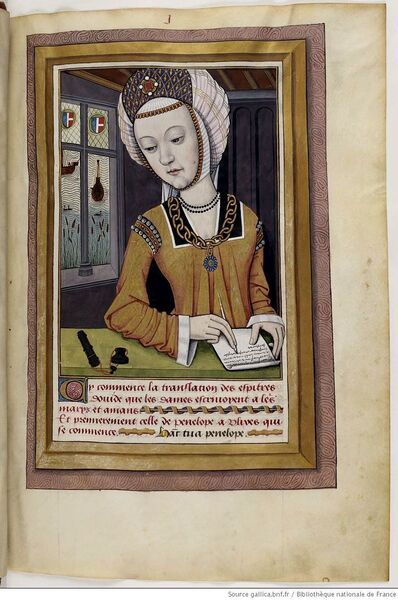 Cy commence la translation des espitres
douide que les dames escriuoyent a leſ
marys et amans
Et premierement celle de penelope a vlixes qui
se commence. hac tua penelope.
Source gallica.bnf.fr / Bibliothèque nationale de France